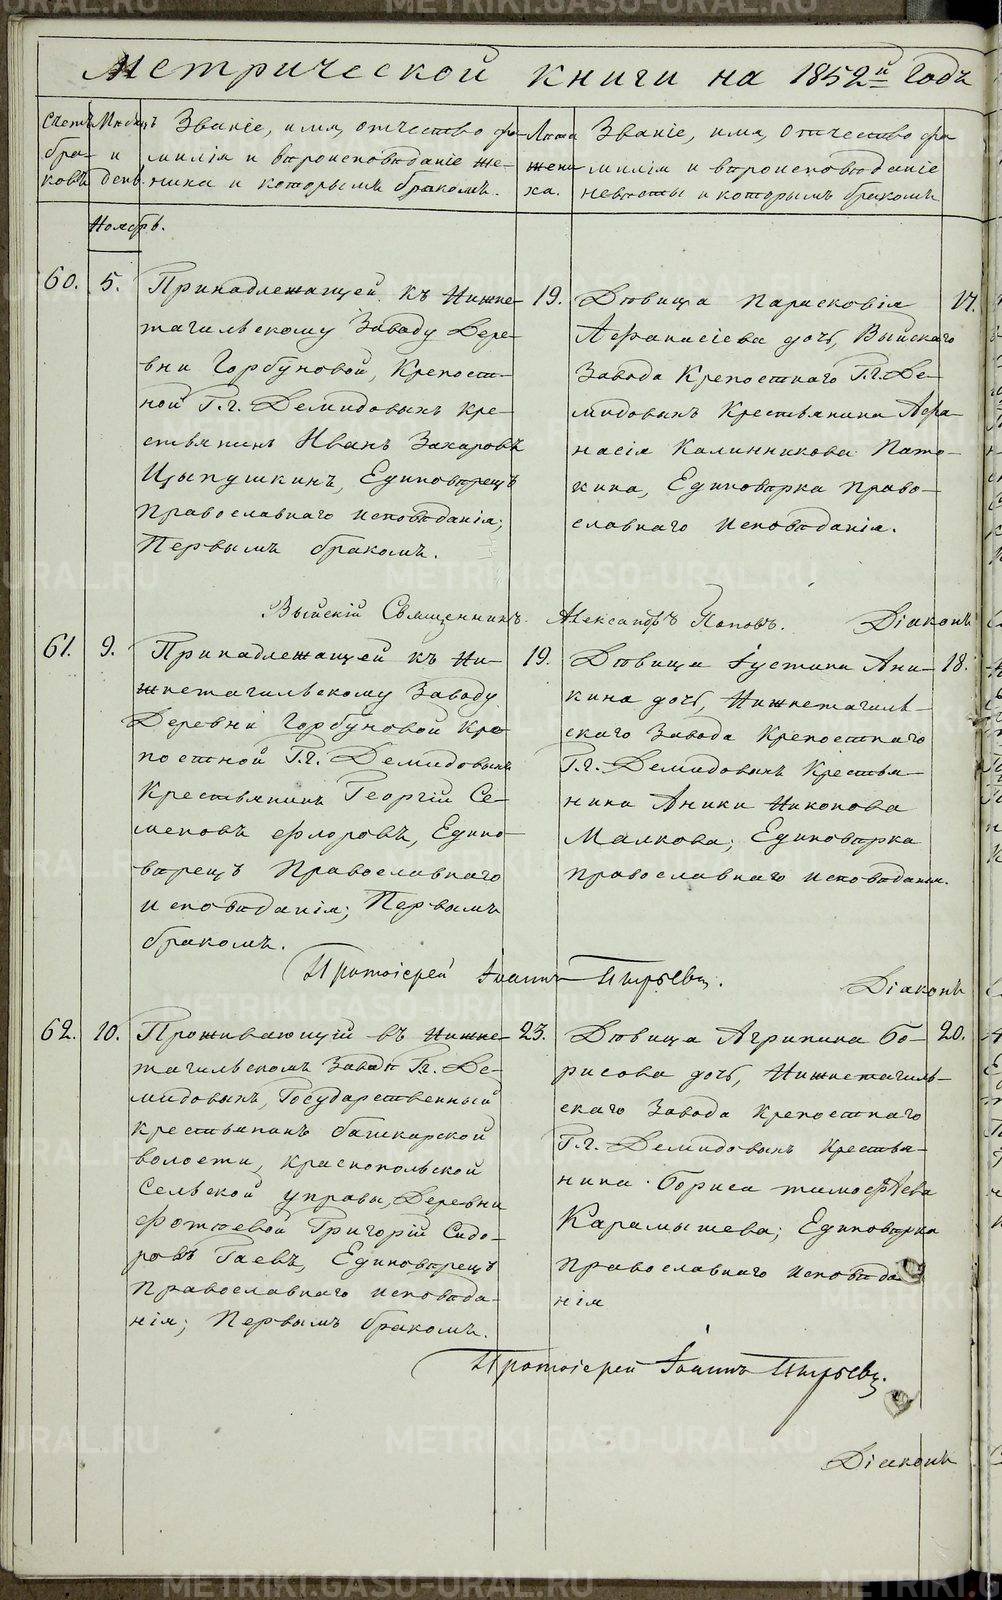 Метрической книги на 1852й годъ
Счетъ браковъ
Мѣсяцъ и день
Званіе, имя, отчество фамилія и вѣроисповѣданіе жениха и которымъ бракомъ.
Лѣта жениха.
Званіе, имя, отчество фамилія и вѣроисповѣданіе невѣсты и которымъ бракомъ
Ноябрь.
60.
5.
Принадлежащей къ Нижне-
тагильскому Заводу Дере-
вни Горбуновой, Крепост-
ной Г.г. Демидовыхъ кре-
стьянинъ Иванъ Захаровъ
Цыпушкинъ, Единоверецъ
Православнаго исповѣданія;
Первымъ бракомъ.
19.
Дѣвица Парасковія
Афанасіева дочь, Выйскаго
Завода Крепостнаго Г.г. Де-
мидовыхъ Крестьянина Афа-
насія Калинникова Пато-
кина, Единоверка Право-
славнаго исповѣданія.
17.
Выйскій Священникъ Александръ Поповъ. Діаконъ
61.
9.
Принадлежащей къ Ни-
жнетагильскому Заводу
Деревни Горбуновой Кре-
постной Г.г. Демидовыхъ
Крестьянинъ Георгій Се-
меновъ Флоровъ, Едино-
верецъ Православнаго
исповѣданія; Первымъ
бракомъ.
19.
Дѣвица Іустина Ани-
кина дочь, Нижнетагиль-
скаго Завода Крепостнаго
Г.г. Демидовыхъ Крестья-
нина Аники Никонова
Малкова; Единоверка
православнаго исповѣданія.
18.
Протоіерей Іоаннъ Пырьевъ.
Діаконъ
62.
10.
Проживающій въ Нижне-
тагильскомъ Заводѣ Гг. Де-
мидовыхъ, Государственный
крестьянинъ башкарской
волости, краснопольской
Сельской управы, Деревни
Фотѣевой Григорій Сидо-
ровъ Гаевъ, Единоверецъ
Православнаго исповѣда-
нія; Первымъ бракомъ.
23.
Дѣвица Агрипина Бо-
рисова дочь, Нижнетагиль-
скаго Завода Крепостнаго
Г.г. Демидовыхъ Крестья-
нина Бориса тимофѣева
Карамышева; Единоверка
Православнаго исповѣда
нія
20.
Протоіерей Іоаннъ Пырьевъ.
Діаконъ
METRIKI.GASO-URAL.RU